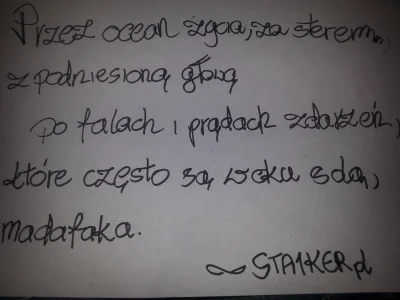 Przez ocean zgaa, za sterem,
z podniesioną głową
po falach i prądach zdarzeń,
które często są wcku sdą,
madafaka.
~ STA1KER.pl